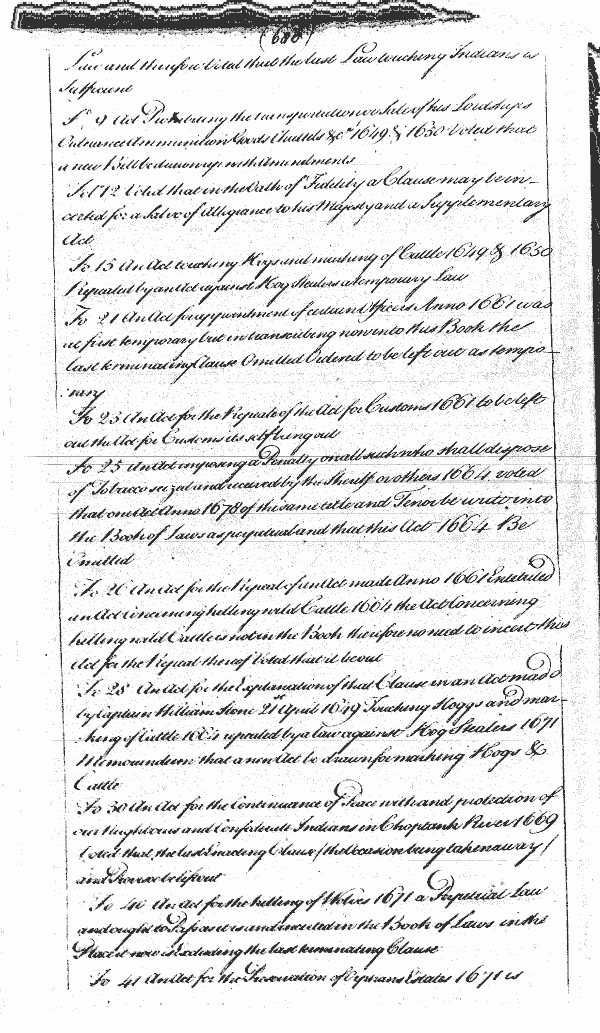 (688)
Law and therefore Voted that the last Law touching Indians is
Sufficient
Fo 9 Act Prohibiting the transportation or Sale of his Lordships
Ordnance Ammunition Goods Chattels &ca 1649 & 1650 Voted that
a new Bill be drawn up with Amendments
Fol 12 Voted that in the Oath of Fidelity a Clause may be in-
certed for a Salvo of Allegiance to his Majesty and a Supplementary
Act
Fo 15 An Act touching Hogs and marking of Cattle 1649 & 1650
Repealed by an Act against Hog Stealers a temporary Law
Fo 21 An Act for appointment of certain Officers Anno 1661 was
at first temporary but in transcribing now into this Book the
last terminating Clause Omitted Ordered to be left out as tempo-
rary
Fo 23 An Act for the Repeale of the Act for Customs 1661 to be left
out the Act for Customs its self being out
Fo 25 An Act imposing a Penalty on all such who shall dispose
of Tobacco seized and received by the Sheriff or others 1664 voted
that one Act Anno 1678 of the same title and Tenor be writt into
the Book of Laws as perpetual and that this Act 1664 Be
Omitted
Fo 26 An Act for the Repeal of an Act made Anno 1661 Entituled
an Act Concerning killing wild Cattle 1664 the Act Concerning
killing wild Cattle is not in the Book therefore no need to incert this
Act for the Repeal thereof Voted that it be out
Fo 28 An Act for the Explanation of that Clause in an Act made
by Captain William Stone 21st April 1649 Touching Hoggs and mar-
king of Cattle 1664 repealed by a law against Hog Stealers 1671
Memorandum that a new Act be drawn for marking Hogs &
Cattle
Fo 30 An Act for the Continuance of Peace with and protection of
our Neighbours and Confederate Indians in Choptank River 1669
Voted that, the last Enacting Clause / the Occasion being taken away /
and Proviso be left out
Fo 40 An Act for the killing of Wolves 1671 a Perpetual Law
and ought to Pass as it is and incerted in the Book of Laws in the
Place it now is excluding the last terminating Clause
Fo 41 An Act for the Preservation of Orphans Estates 1671 is